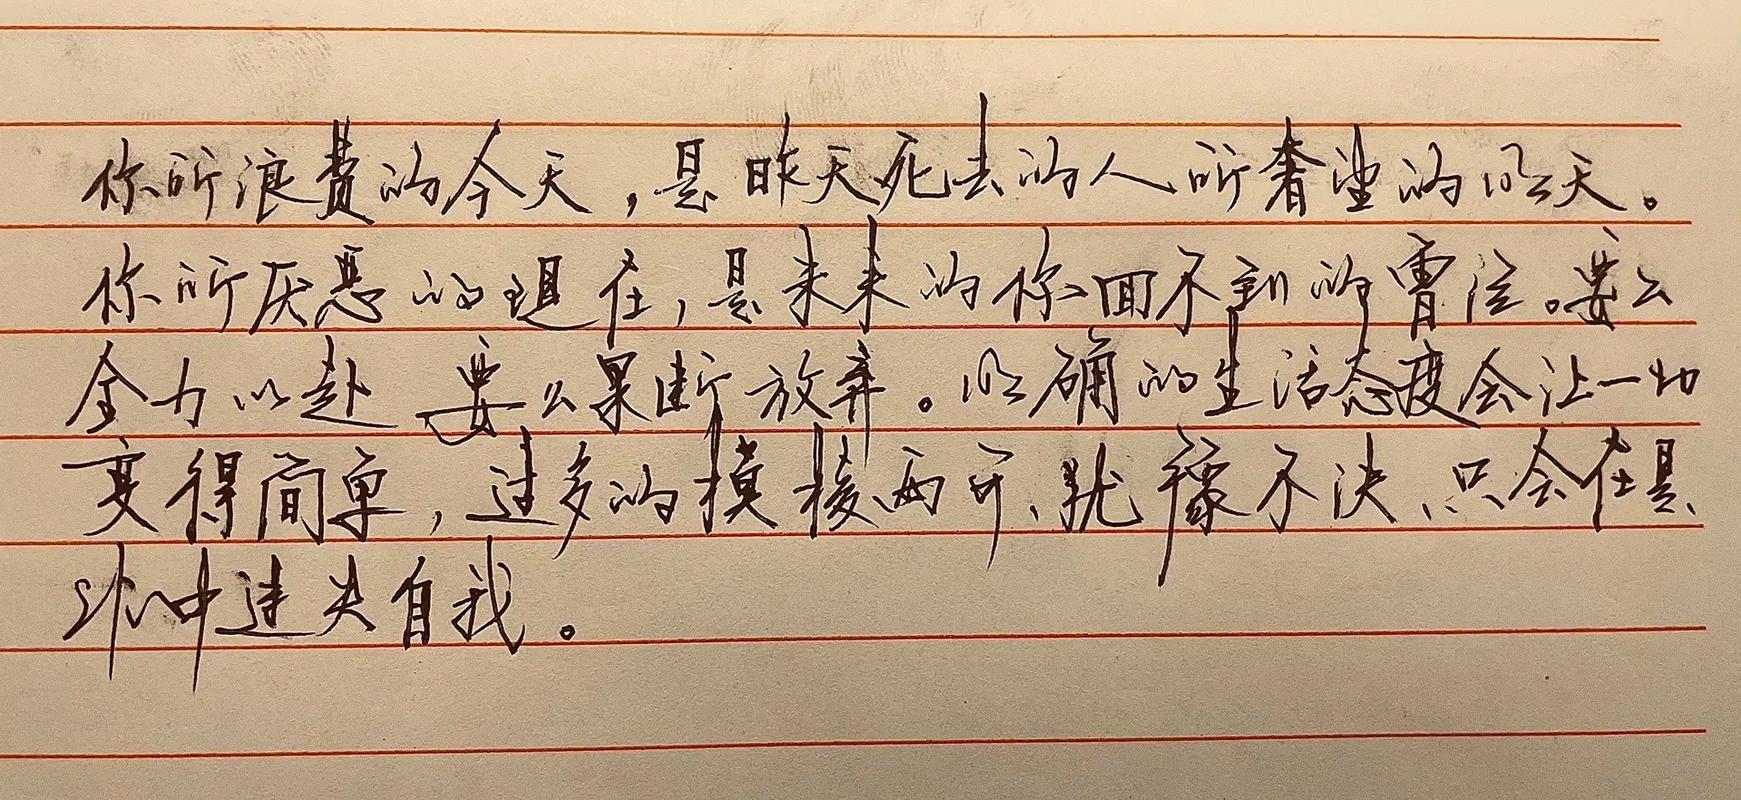 你所浪费的今天，是昨天死去的人所奢望的明天。
你所厌恶的现在，是未来的你回不到的曾经。要么
全力以赴 要么果断放弃。明确的生活态度会让一切
变得简单，过多的模棱两可、犹豫不决、只会在是
非中迷失自我。